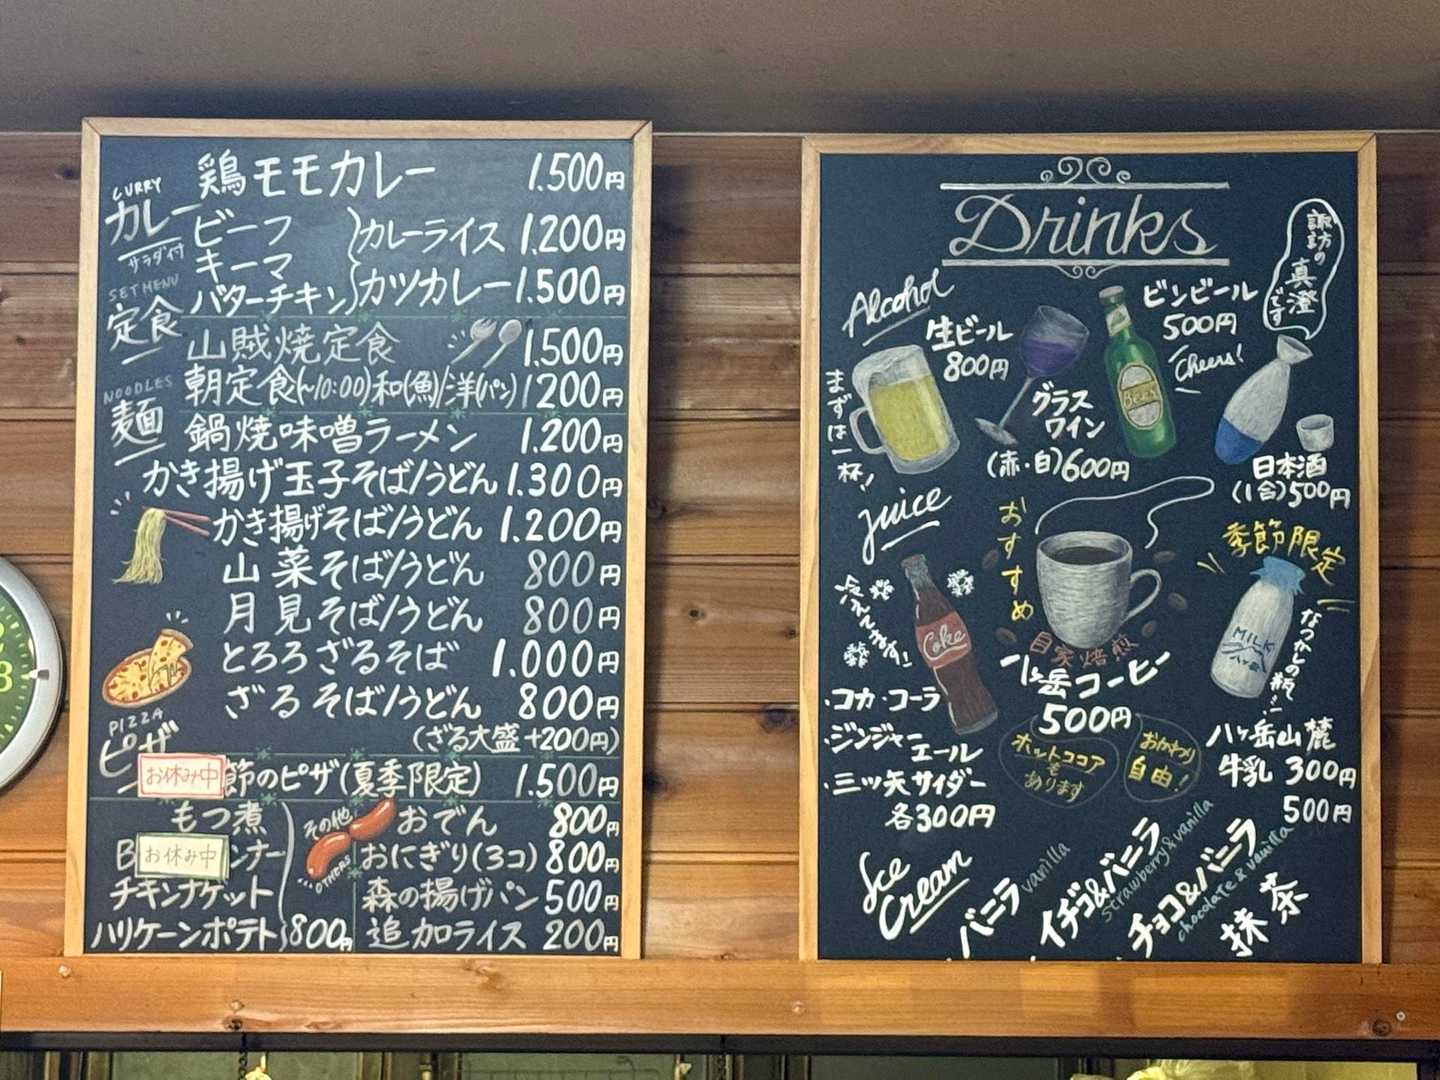 CURRY
カレー
サラダ付
鶏モモカレー 1.500円
ビーフ
キーマ
バターチキン
カレーライス 1.200円
カツカレー 1.500円
SET MENU
定食
山賊焼定食 1,500円
朝定食(~10:00)和(魚)/洋(パン) 1200円
NOODLES
麺
鍋焼味噌ラーメン 1.200円
かき揚げ玉子そば/うどん 1.300円
かき揚げそば/うどん 1.200円
山菜そば/うどん 800円
月見そば/うどん 800円
とろろざるそば 1.000円
ざるそば/うどん 800円
(ざる大盛+200円)
PIZZA
ピザ
お休み中
節のピザ(夏季限定) 1.500円
もつ煮
B
お休み中
ンナー
チキンナゲット
ハリケーンポテト
800円
その他
OTHERS
おでん 800円
おにぎり(3コ) 800円
森の揚げパン 500円
追加ライス 200円
Drinks
諏訪の
真澄
です
Alcohol
まずは一杯!
生ビール
800円
グラス
ワイン
(赤・白)600円
ビンビール
500円
Cheers!
Beer
日本酒
(1合)500円
Juice
Coke
・コカ・コーラ
・ジンジャーエール
・三ツ矢サイダー
各300円
おすすめ
自家焙煎
八ヶ岳コーヒー
500円
ホットココア
も
あります
おかわり
自由!
季節限定
MILK
八ヶ岳
なつかしの瓶!
八ヶ岳山麓
牛乳 300円
500円
Ice
Cream
バニラ
vanilla
イチゴ&バニラ
strawberry & vanilla
チョコ&バニラ
chocolate & vanilla
抹茶